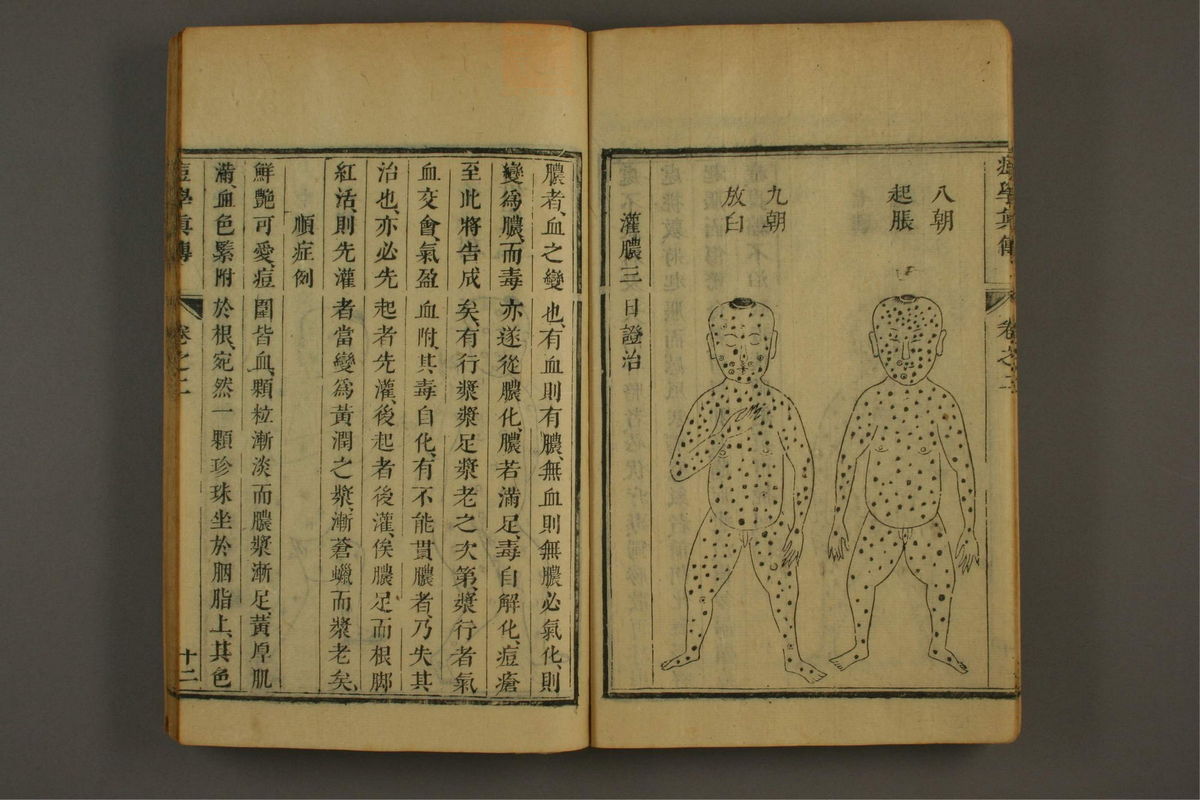 八朝
起脹
九朝
放白
灌膿三日證治
膿者、血之變也、有血則有膿、無血則無膿、必氣化、則
變爲膿、而毒亦遂從膿化、膿若滿足、毒自解化、痘瘡
至此將告成矣、有行漿漿足漿老之次第、漿行者氣
血交會、氣盈血附、其毒自化、有不能貫膿者、乃失其
治也、亦必先起者先灌、後起者後灌、俟膿足而根脚
紅活、則先灌者當變爲黃潤之漿、漸蒼蠟而漿老矣、
順症例
鮮艷可愛、痘圍皆血、顆粒漸淡而膿漿漸足、黃厚肌
滿、血色緊附於根、宛然一顆珍珠坐於胭脂上、其色
痘學真傳
卷之二
十二